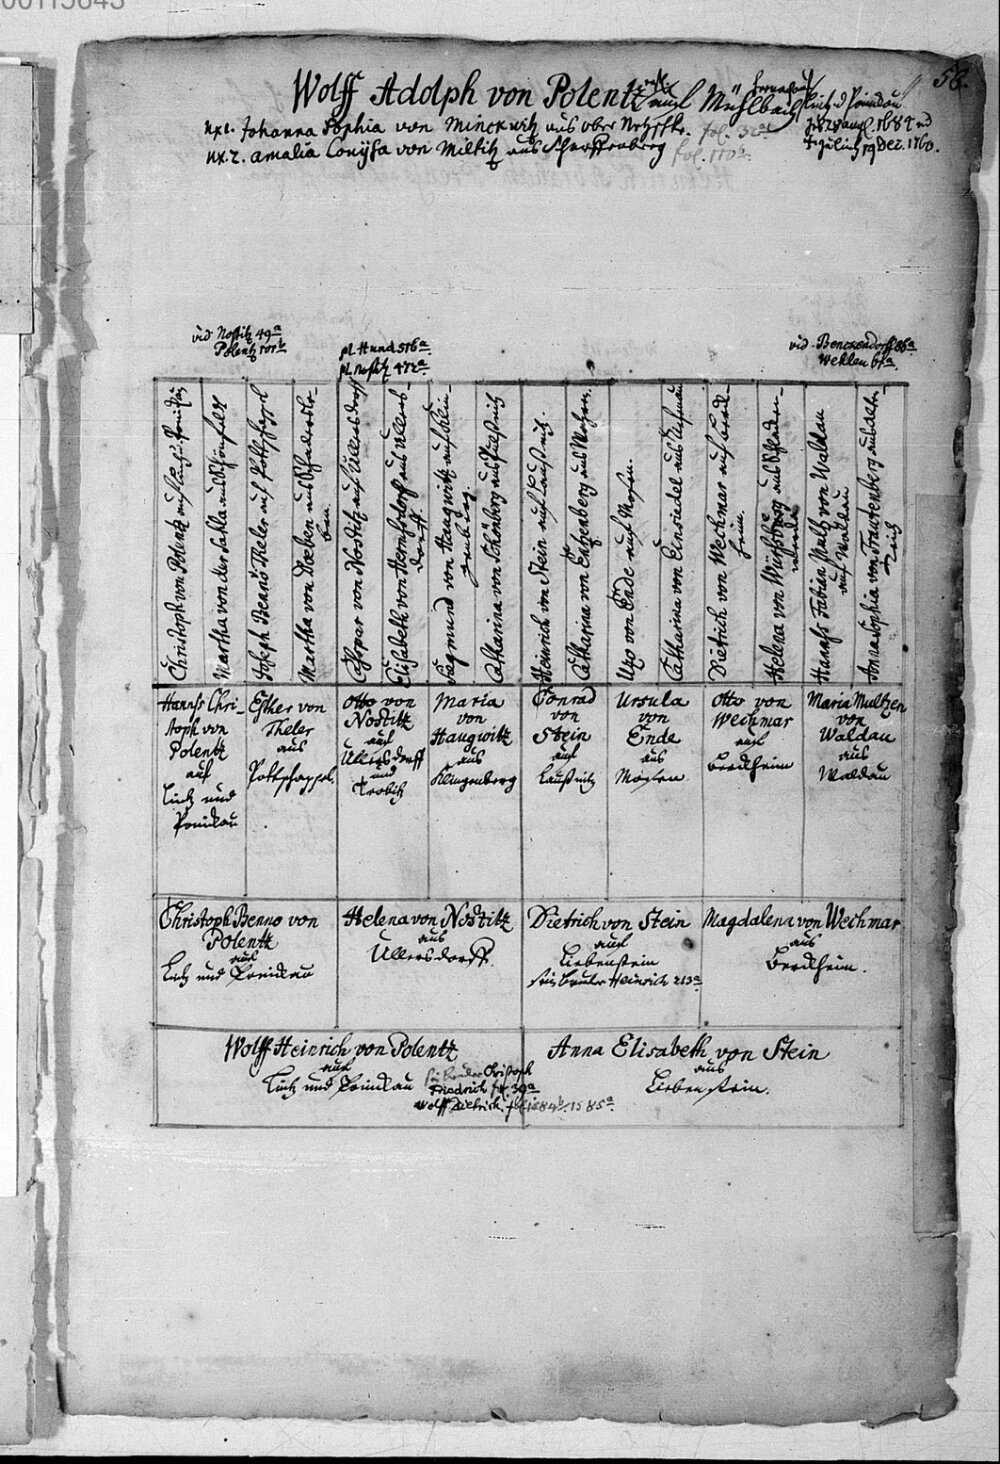 00115843
58.
Wolff Adolph von Polentz auf Mühlbach
Linz d Ponickau
ux 1. Johanna Sophia von Minckwitz aus ober fol. 32a
28 aug. 1684
ux. 2. Amalia Louysa von Miltitz aus Scharffenberg fol. 170b
19 Dec. 1760.
vid Nostitz 49a
Polentz 101b
pl. Hund 516a
pl. Nostitz 472a
vid. Benckendorff 86a
Wehlen 67a
Christoph von Polentz auf Linz u. Ponickau
Martha von der Sahla aus Schönfeld
Joseph Benno Theler auf Pottschappel
Martha von
Caspar von Nostitz auf Ullersdorff
Elisabeth von Gernsdorf aus Ullersdorff.
Siegmund von Haugwitz auf Klingenberg.
Catharina von Schönberg aus
Heinrich von Stein auf Laußnitz.
Catharina von Entzenberg aus
Utz von Ende auf Mosen.
Catharina von Einsiedel aus
Dietrich von Wechmar auf
Helena von
Hannß Fabian Multz von Waldau auf Waldau
Anna Sophia von Trautenberg aus
Hannß Chri-
stoph von
Polentz
auf
Linz und
Ponickau
Esther von
Theler
aus
Pottschappel.
Otto von
Nostitz
auf
Ullersdorff
und
Trebitz
Maria
von
Haugwitz
aus
Klingenberg
Conrad
von
Stein
auf
Laußnitz
Ursula
von
Ende
aus
Mosen.
Otto von
Wechmar
auf
Maria Multzen
von
Waldau
aus
Waldau
Christoph Benno von
Polentz
auf
Linz und Ponickau
Helena von Nostitz
aus
Ullersdorff.
Dietrich von Stein
auf
Liebenstein
sein bruder Heinrich 213a
Magdalena von Wechmar
aus
Wolff Heinrich von Polentz
auf
Linz und Ponickau
sein bruder Christoph
Friedrich fol. 39a
Wolff Dietrich. fol. 184b. 1585a.
Anna Elisabeth von Stein
aus
Liebenstein.